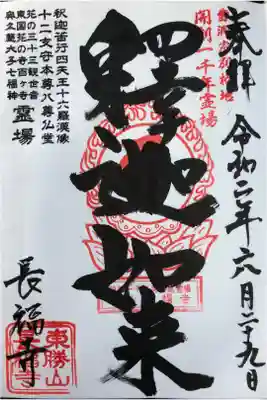 奉拝
令和二年六月二十九日
開創一千年霊場
釋迦如来
釈迦苦行四天王十六羅漢像
十二支守本尊八尊仏堂
花の三十三観世音
東国花の寺百ヶ寺
奥久慈大子七福神
霊場
長福寺
東勝山